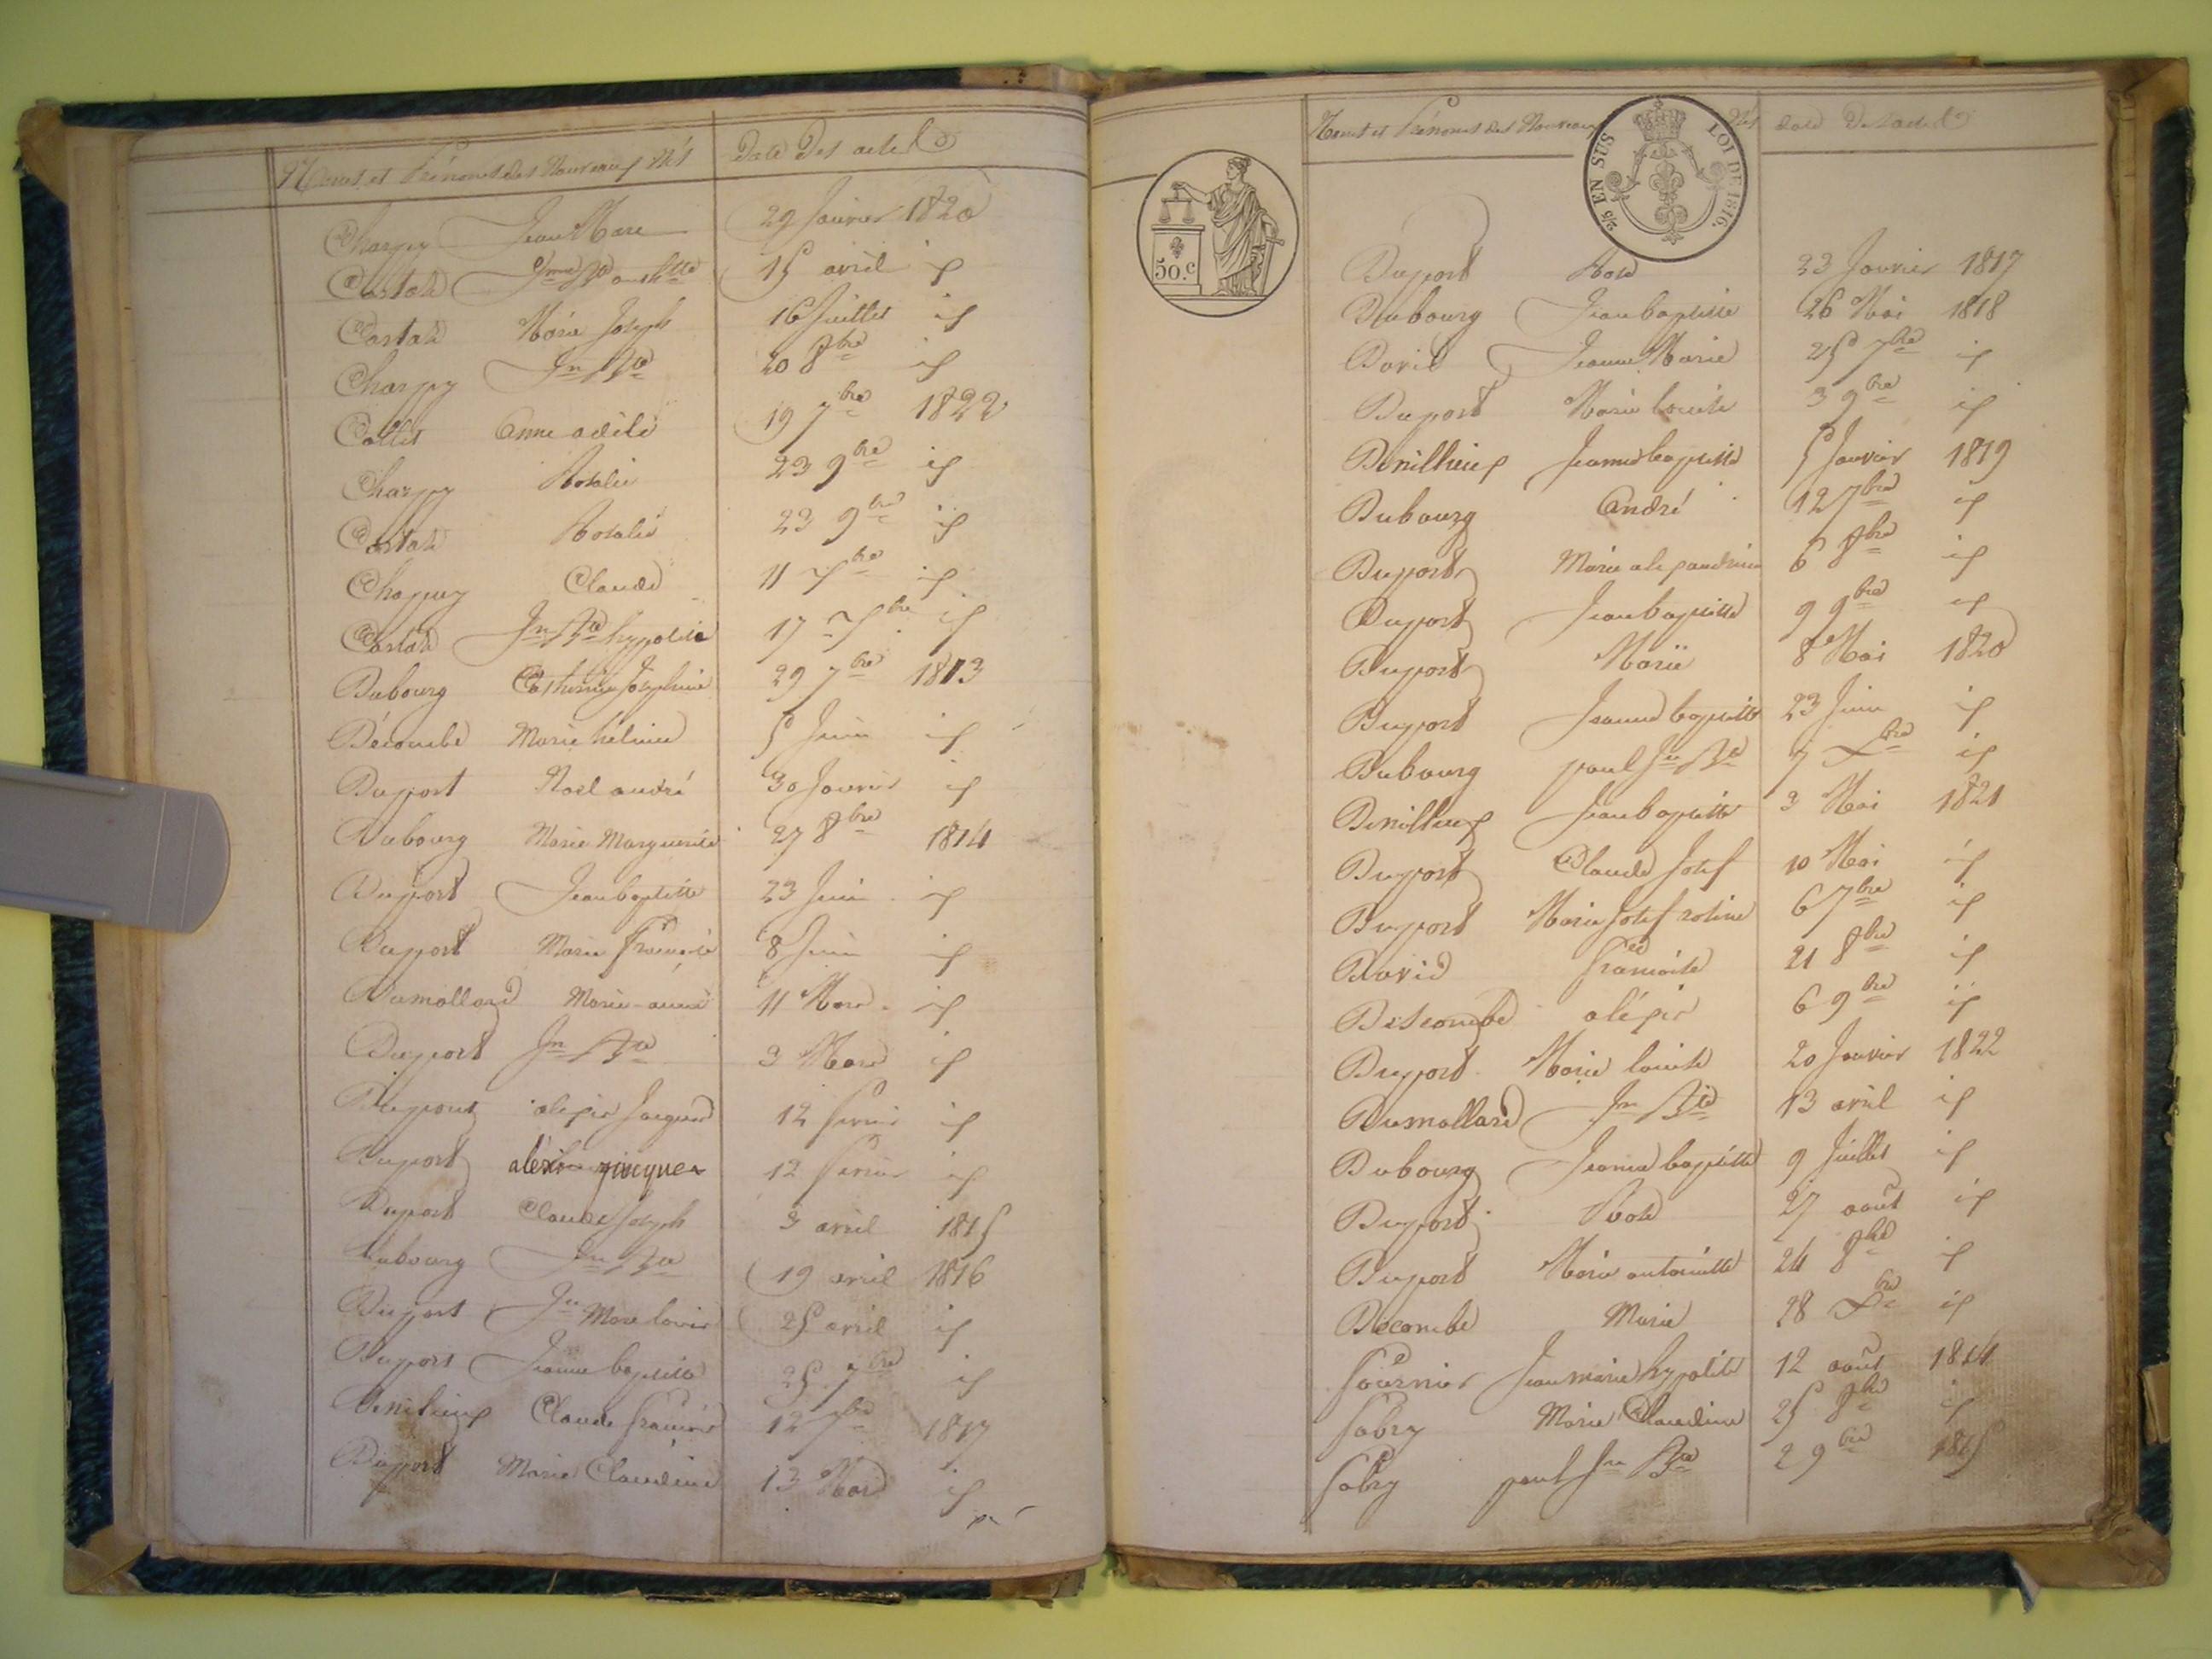 Noms et Prénoms des Nouveaux Nés Date Des actes
Charpy Jean Marc 29 Janvier 1820
Costaz 15 avril id
Costaz Marie Joseph 16 Juillet id
Charpy Jn Bte 20 8bre id
Collet Anne adèle 19 7bre 1822
Charpy Rosalie 23 9bre id
Costaz Rosalie 23 9bre id
Chappuy Claude 11 7bre id
Costaz Jn Bte hypolite 17 id
Dubourg Catherine Josephine 29 7bre 1813
Décombe Marie hélène 5 Juin id
Duport Noel andré 30 Janvier id
Dubourg Marie Marguerite 27 8bre 1814
Duport Jean baptiste 23 Juin id
Duport Marie Françoise 8 Juin id
Dumollard Marie 11 Mars id
Duport Jn Bte 3 Mars id
Duport alexis Jacques 12 fevrier id
Duport alexis jacques 12 fevrier id
Duport Claude Joseph 3 avril 1815
Dubourg Jn Bte 19 avril 1816
Duport Jn Marc louis 25 avril id
Duport Jeanne baptiste 25 7bre id
Claude François 12 7bre 1817
Duport Marie Claudine 13 Mars id
Noms et Prénoms des Nouveaux Nés date Des actes
2/5 EN SUS LOI DE 1816.
50.c
Duport Rose 23 Janvier 1817
Dubourg Jean baptiste 26 Mai 1818
David Jeanne Marie 25 7bre id
Duport Marie louise 3 9bre id
Denillieux Jeanne baptiste 5 Janvier 1819
Dubourg André 12 7bre id
Duport Marie alexandrine 6 8bre id
Duport Jean baptiste 9 9bre id
Duport Marie 8 Mai 1820
Duport Jeanne baptiste 23 Juin id
Dubourg paul Jn Bte 7 Xbre id
Denillieux Jean baptiste 3 Mai 1821
Duport Claude Josef 10 Mai id
Duport Marie Josef rosine 6 7bre id
David françoise 21 8bre id
Descombe aléxis 6 9bre id
Duport Marie louise 20 Janvier 1822
Dumollard Jn Bte 13 avril id
Dubourg Jeanne baptiste 9 Juillet id
Duport Rose 27 août id
Duport Marie antoinette 24 8bre id
Décombe Marie 28 Xbre id
fournier Jean marie hypolite 12 août 1814
fabry Marie Claudine 25 8bre id
fabry paul Jn Bte 2 9bre 1815